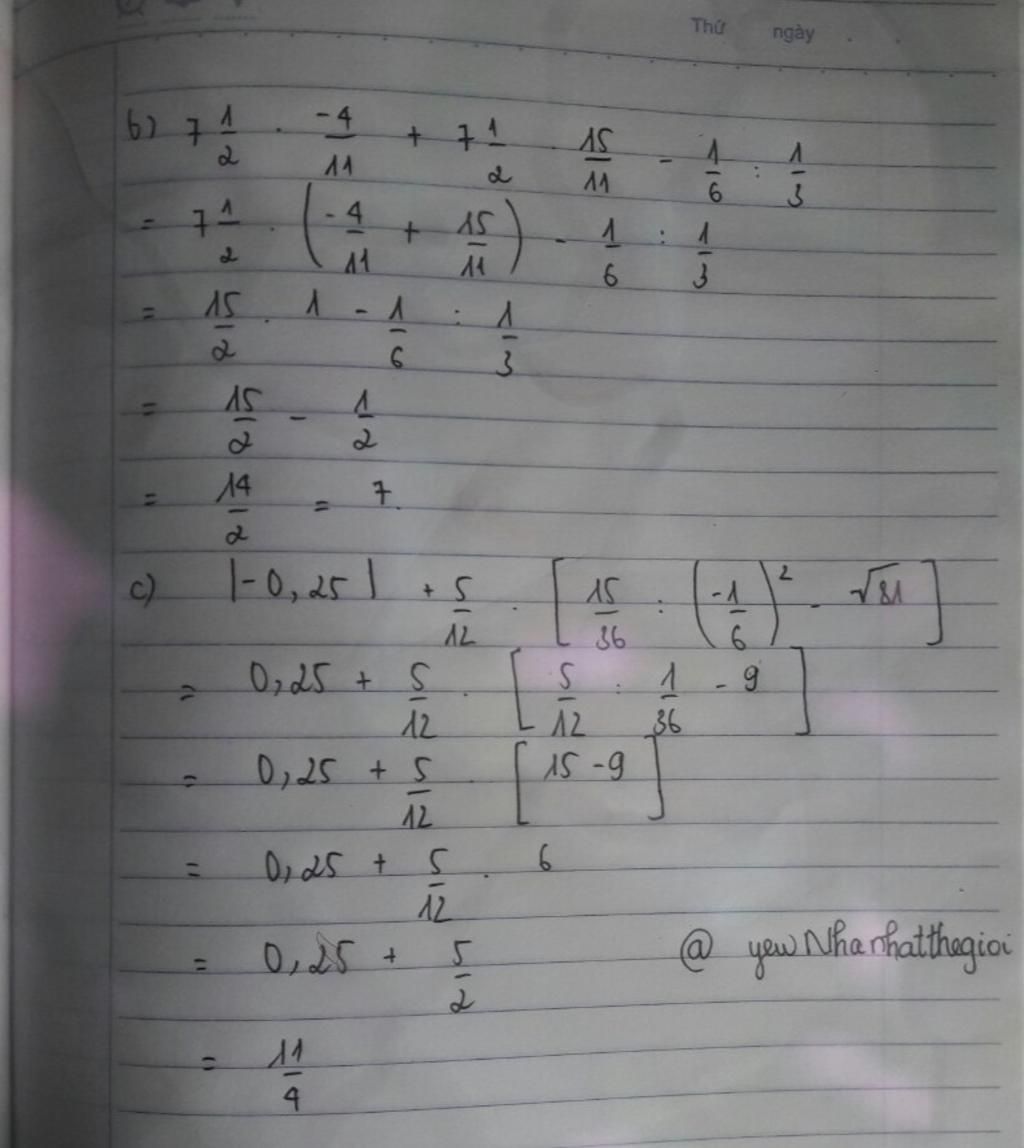 Thứ ngày . .
b) 7 1/2 . -4/11 + 7 1/2 . 15/11 - 1/6 : 1/3
= 7 1/2 . (-4/11 + 15/11) - 1/6 : 1/3
= 15/2 . 1 - 1/6 : 1/3
= 15/2 - 1/2
= 14/2 = 7.
c) |-0,25| + 5/12 . [15/36 : (-1/6)² - √81]
= 0,25 + 5/12 . [5/12 : 1/36 - 9]
= 0,25 + 5/12 . [15 - 9]
= 0,25 + 5/12 . 6
= 0,25 + 5/2
@ yewNhanhatthegioi
= 11/4